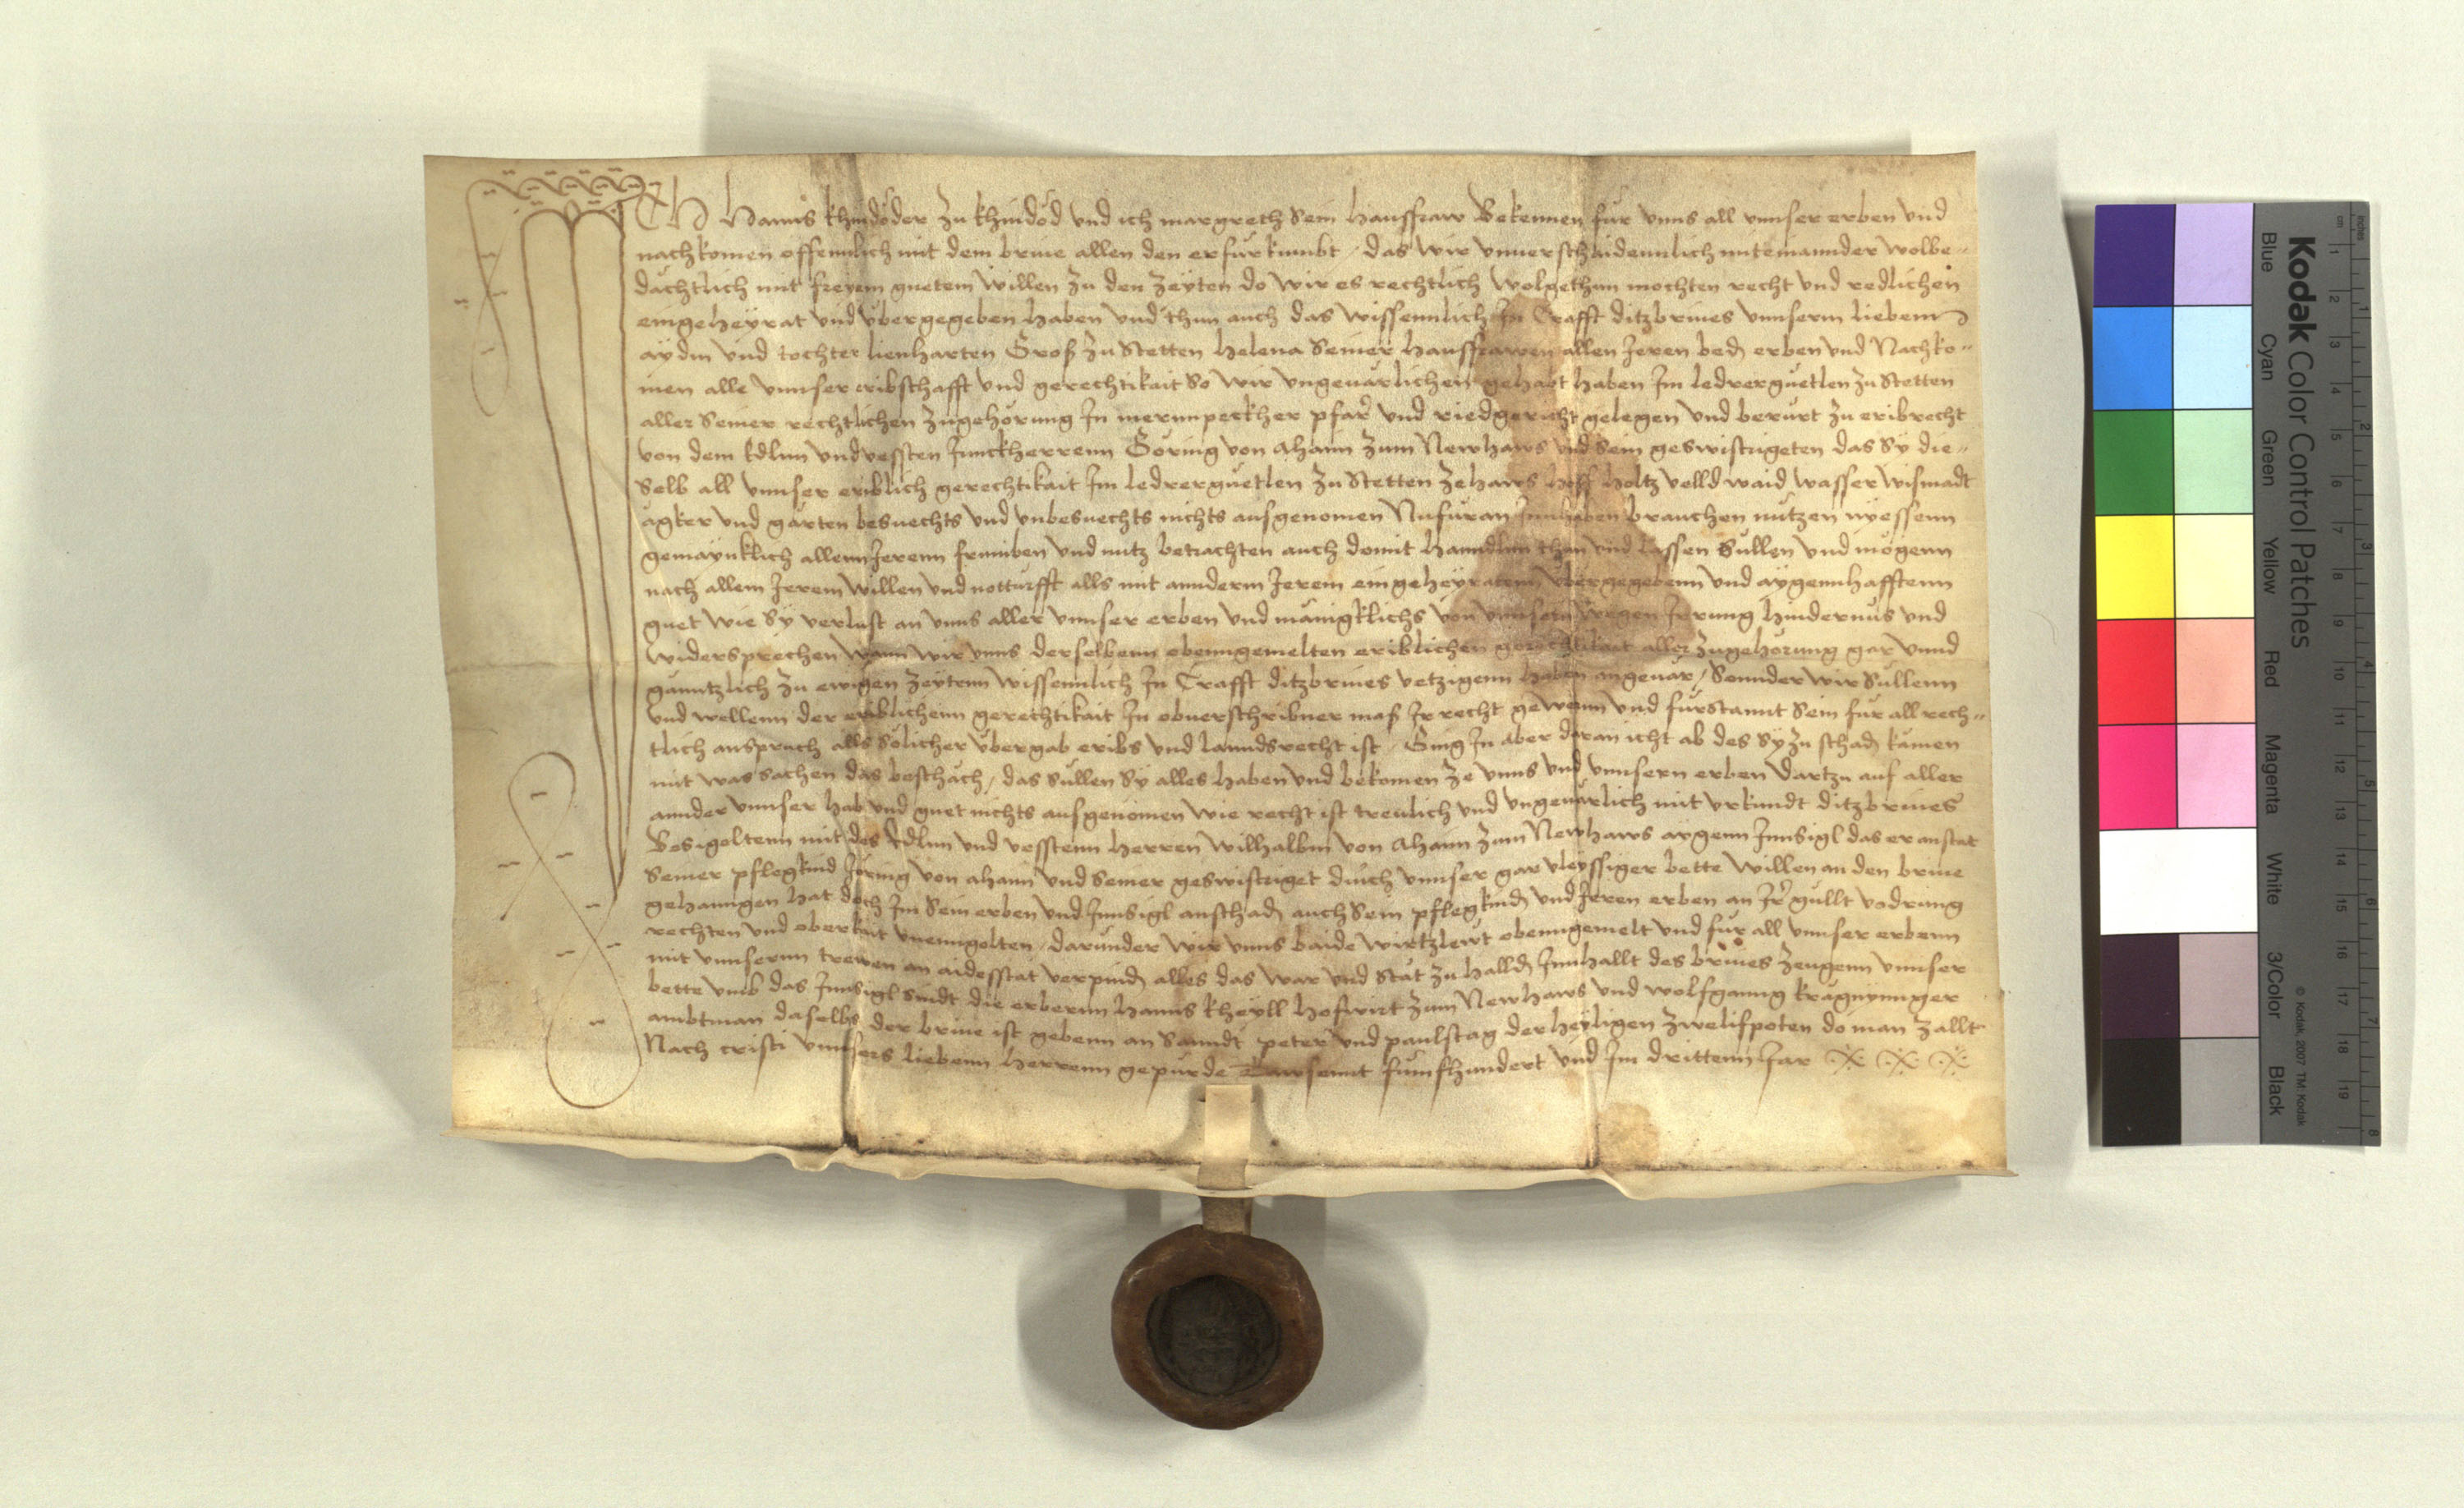 ICH Hanns khindöder zu khindöd vnd ich margreth Sein hausfraw Bekennen für vnns all vnnser erben vnd
nachkomen offennlich mit dem brieue allen den er fürkumbt / das wir vnnuerschaidennlich miteinannder wolbe-
dächtlich mit freyem guetem willen zu den zeyten do wir es rechtlich wolgethun mochten recht vnd redlichen
eingeheyrat vnd vbergegeben haben vnd thun auch das wissennlich In Crafft ditzbrieues vnnserm liebenn
aydm vnd tochter lienharten Groß zu Stetten helena Seiner hausfrawen allen Jeren bed erben vnd Nachko-
men alle vnnser eribschafft vnd gerechtikait So wir vngeuärlichen gehabt haben Im ledrerguetlen zu Stetten
aller Seiner rechtlichen zugehörung In mernpeckher pfarr vnd riedgericht gelegen vnd berürt zu eribrecht
von dem Edlnn vnd vessten Junckherrenn Göring von Ahaim zum Newhaws vnd Sein geswistrigeten das Sy die-
Selb all vnnser eriblich gerechtikait Im ledrerguetlen zu Stetten zehaws hoff holtz velld waid wasser wismadt
ägker vnd gärten besuechts vnd vnbesuechts nichts ausgenomen Nufüran Innhaben brauchen nützen nyessenn
gemaynklich allenn Jerenn frumben vnd nutz betrachten auch domit hanndlnn thun vnd lassen Süllen vnd mögenn
nach allem Jerem willen vnd notturfft alls mit annderm Jerem eingeheyratenn vbergegebenn vnd aygennhafftenn
guet wie Sy verlust an vnns aller vnnser erben vnd mänigklichs von vnnsern wegen Jrrung hindernüs vnd
widersprechen wann wir vnns derselbenn obenngemelten eriblichen gerechtikait aller zugehörung gar vnnd
ganntzlich zu ewigen zeytenn wissennlich In Crafft ditzbrieues vertzigenn haben angeuar / Sonnder wir Süllenn
vnd wellenn der eriblichenn gerechtikait In obuerschribner maß Ir recht gewernn vnd fürstannt Sein für all rech-
tlich anspruch alls Sölicher vbergab eribs vnd lanndsrecht ist / Ging In aber daran icht ab des Sy zu schad kämen
mit was sachen das beschäch / das Süllen Sy alles haben vnd bekomen ze vnns vnd vnnsern erben dartzu auf aller
annder vnnser hab vnd guet nichts ausgenomen wie recht ist treulich vnd vngeuärlich mit vrkundt ditzbrieues
Besigeltenn mit des Edlnn vnd vesstenn herren wilhalbm von Ahaim zum Newhaws aygenn Innsigl das er anstat
Seiner pflegkind Jöring von ahaim vnd Seiner geswistriget durch vnnser gar vleyssiger bette willen an den brieue
gehanngen hat doch Im Sein erben vnd Innsigl anschad auch Sein pflegkind vnd Jeren erben an Ir gullt vodrung
rechten vnd oberkait vnenngolten / darunder wir vnns baide wirtzlewt obenngemelt vnd für all vnnser erbenn
mit vnnsernn trewen an aidesstat verpind alles das war vnd stät zu halld Innhallt des brieues zeugenn vnnser
bette vmb das Innsigl sindt die erbernn hanns kheyll hofwirt zum Newhaws vnd wolfganng
ambtman daselbs der brieue ist gebenn an Sanndt peter vnd paulstag der heyligen zwelifpoten do man zallt
Nach cristi vnnsers liebenn herrenn gepurde Tawsennt fümfhundert vnd Im drittenn Jar
Kodak Color Control Patches
Blue Cyan Green Yellow Red Magenta White 3/Color Black
© Kodak, 2007 TM: Kodak
cm 1 2 3 4 5 6 7 8 9 10 11 12 13 14 15 16 17 18 19
inches 1 2 3 4 5 6 7 8